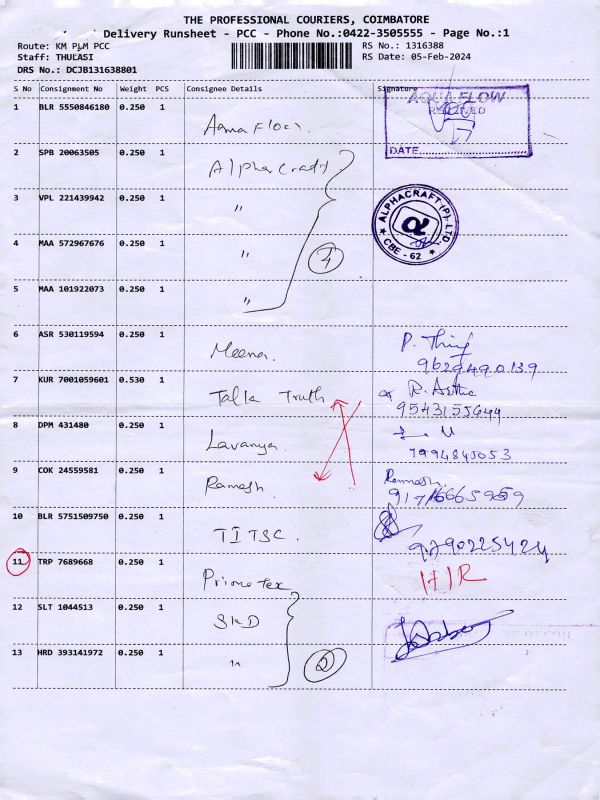 THE PROFESSIONAL COURIERS, COIMBATORE
Delivery Runsheet - PCC - Phone No.:0422-3505555 - Page No.:1
Route: KM PLM PCC
RS No.: 1316388
Staff: THULASI
RS Date: 05-Feb-2024
DRS No.: DCJB131638801
S No Consignment No Weight PCS Consignee Details Signature
1 BLR 5550846180 0.250 1
AQUA FLOW
RECEIVED
DATE
2 SPB 20063505 0.250 1 Alpha Craft
3 VPL 221439942 0.250 1 "
ALPHACRAFT (P) LTD.
CBE - 62
4 MAA 572967676 0.250 1 "
4
5 MAA 101922073 0.250 1 "
6 ASR 530119594 0.250 1 Meena
9629490139
7 KUR 7001059601 0.530 1 Talk Truth
9543155644
8 DPM 431480 0.250 1 Lavanya
7994845053
9 COK 24559581 0.250 1 Ramesh
10 BLR 5751509750 0.250 1 TITSC
9790225424
11 TRP 7689668 0.250 1 Prime tex
12 SLT 1044513 0.250 1 SKD
13 HRD 393141972 0.250 1 "
2